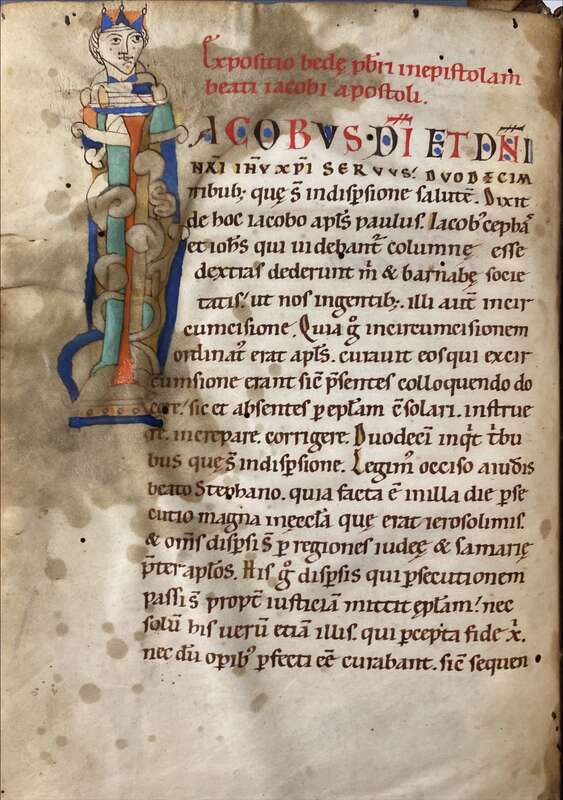 Expositio bedę p̄bri in epistolam
beati iacobi apostoli.
IACOBVS· DĪ ET DÑI
NR̄I IH̄V XP̄I SERVVS. DVODECIM
tribub; quę s̄ in disp̄sione salutē. Dixit
de hoc iacobo apl̄s paulus. Iacob' cepha'
et ioh̄s qui videbant̄ columnę esse
dextras dederunt m̄ & barnabę socie
tatis! ut nos in gentib;. illi aut̄ in cir
cumcisione. Quia g̊ in circumcisionem
ordinat' erat apl̄s. curavit eos qui ex cir
cumsione erant sic̄ p̄sentes colloquendo do
cere! sic et absentes p epl̄am c̄solari. instrue
re. increpare. corrigere. Duodeci inq̇t t̄bu
bus quę s̄ in disp̄sione. Legim' occiso a iudis
beato Stephano. quia facta ē in illa die p̄se
cutio magna in ęccl̄a quę erat ierosolimis.
& om̄s disp̄si s̄ p regiones iudeę & samarię
p̄ter apl̄os. His g̊ disp̄sis qui p̄secutionem
passi s̄ propt̄ iusticiā mittit epl̄am! nec
solū his verū etiā illis. qui p̄cepta fide x̄.
nec dū opib' p̄fecti eē curabant. sic̄ sequen